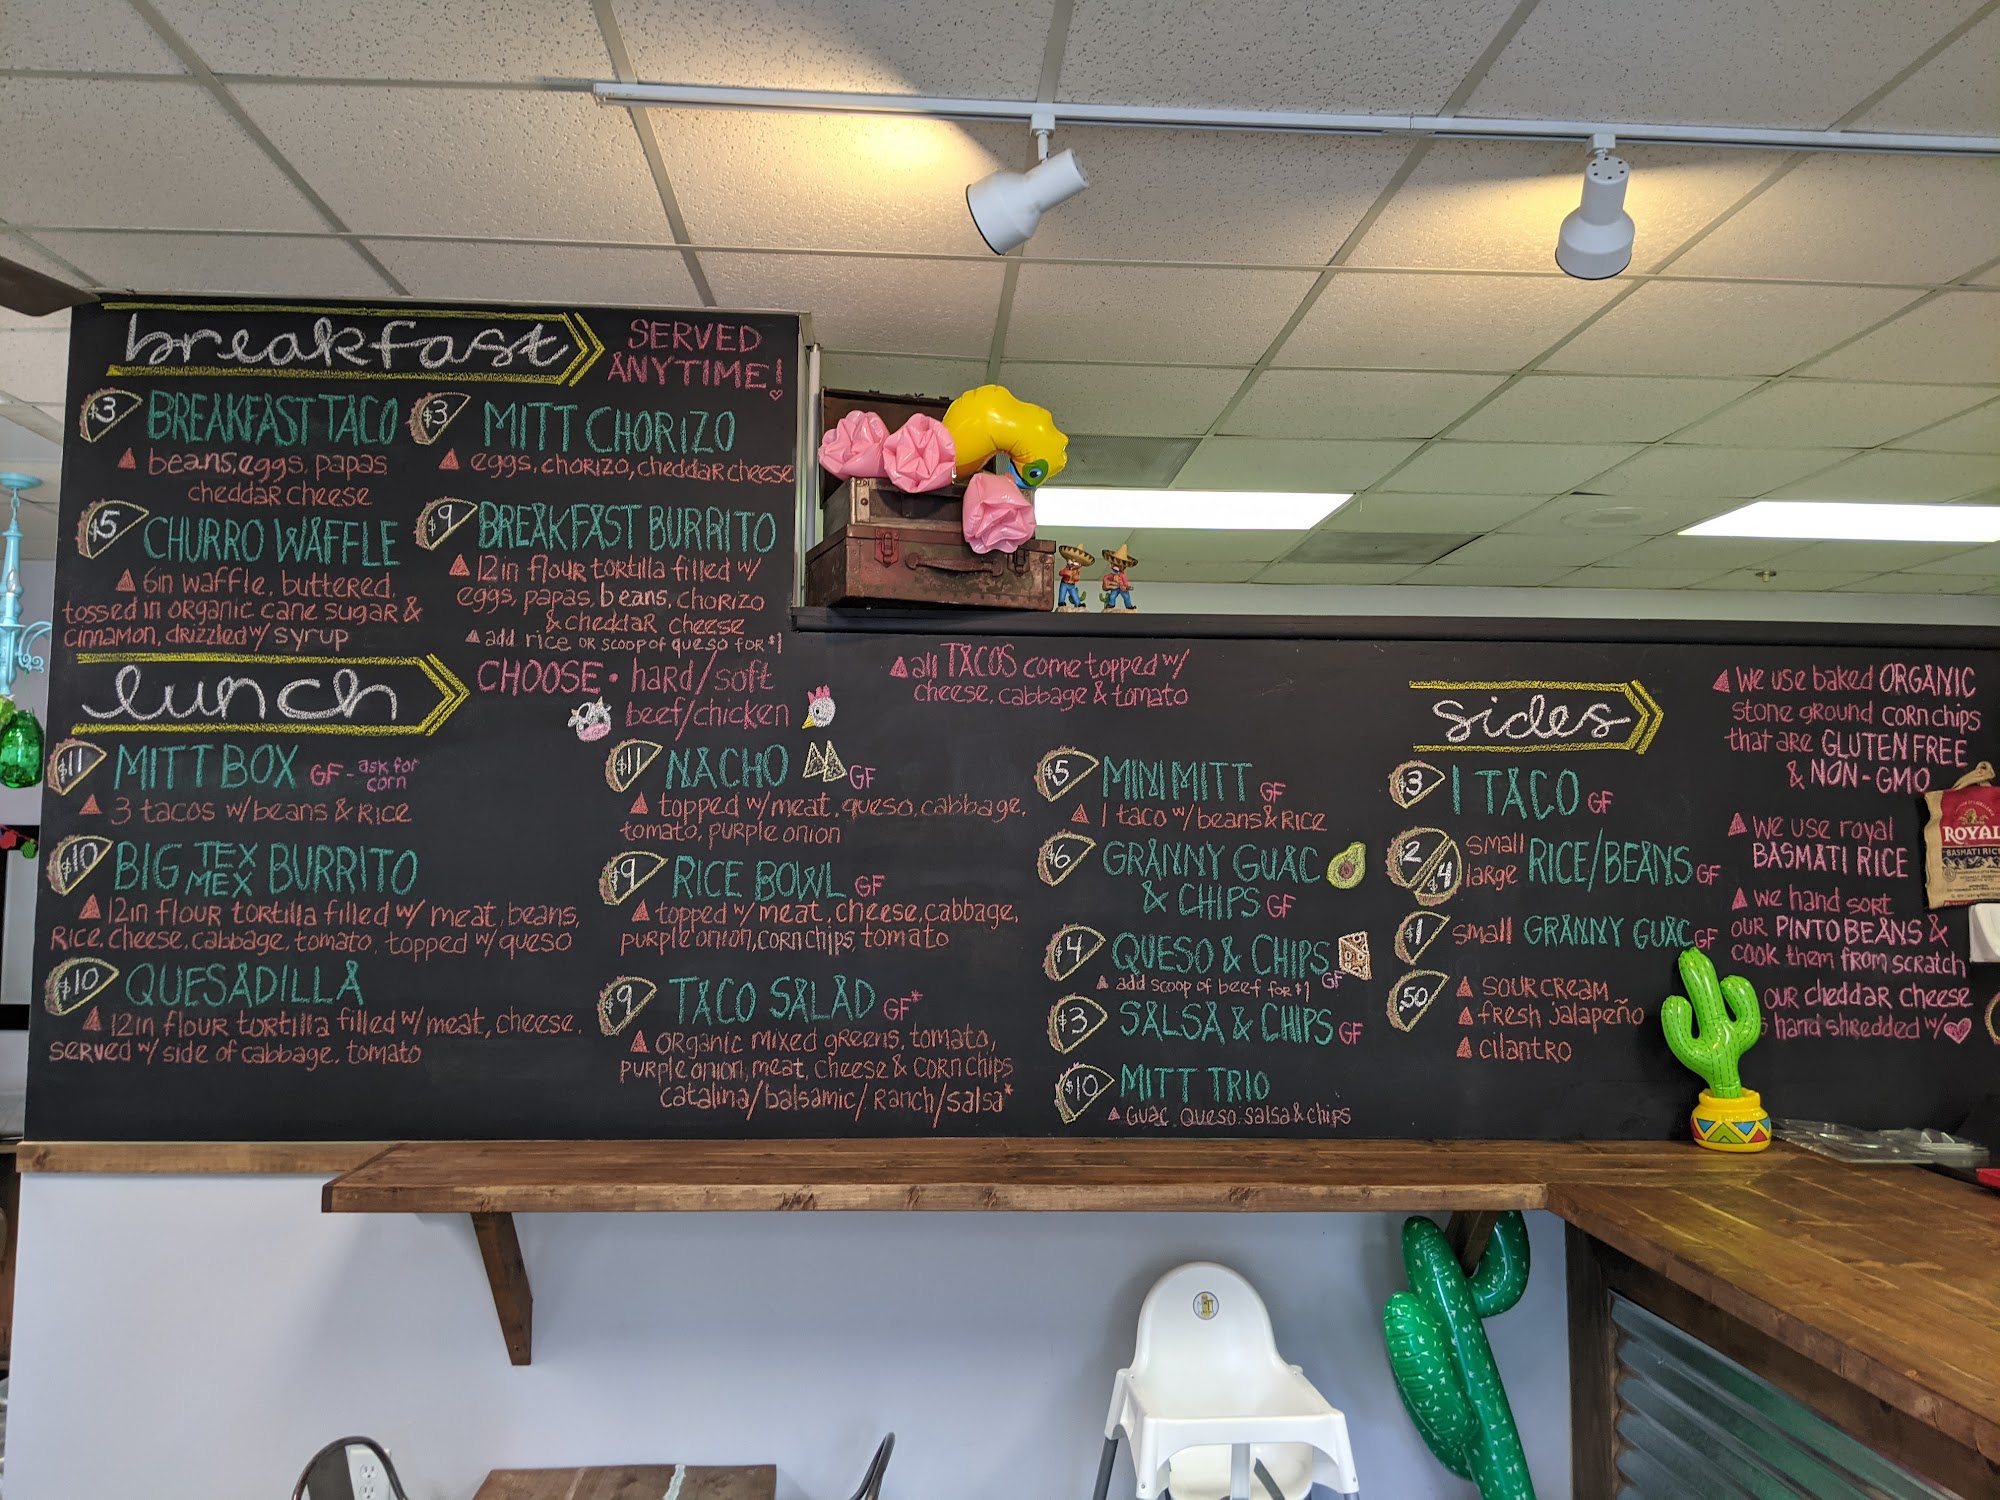 breakfast
SERVED
ANYTIME!
$3 BREAKFAST TACO
beans, eggs, papas
cheddar cheese
$3 MITT CHORIZO
eggs, chorizo, cheddar cheese
$5 CHURRO WAFFLE
6in waffle, buttered,
tossed in organic cane sugar &
cinnamon, drizzled w/ syrup
$9 BREAKFAST BURRITO
12in flour tortilla filled w/
eggs, papas, beans, chorizo
& cheddar cheese
add rice or scoop of queso for $1
lunch
CHOOSE • hard/soft
beef/chicken
all TACOS come topped w/
cheese, cabbage & tomato
$11 MITT BOX GF - ask for
corn
3 tacos w/ beans & rice
$10 BIG TEX MEX BURRITO
12in flour tortilla filled w/ meat, beans,
rice, cheese, cabbage, tomato, topped w/ queso
$10 QUESADILLA
12in flour tortilla filled w/ meat, cheese,
served w/ side of cabbage, tomato
$11 NACHO GF
topped w/ meat, queso, cabbage,
tomato, purple onion
$9 RICE BOWL GF
topped w/ meat, cheese, cabbage,
purple onion, corn chips, tomato
$9 TACO SALAD GF*
organic mixed greens, tomato,
purple onion, meat, cheese & corn chips
catalina/balsamic/ranch/salsa*
$5 MINI MITT GF
1 taco w/ beans & rice
$6 GRANNY GUAC
& CHIPS GF
$4 QUESO & CHIPS GF
add scoop of beef for $1
$3 SALSA & CHIPS GF
$10 MITT TRIO
guac, queso, salsa & chips
sides
$3 1 TACO GF
2 small
$4 large RICE/BEANS GF
$1 small GRANNY GUAC GF
.50 sour cream
fresh jalapeño
cilantro
We use baked ORGANIC
stone ground corn chips
that are GLUTEN FREE
& NON-GMO
we use royal
BASMATI RICE
we hand sort
our PINTO BEANS &
cook them from scratch
our cheddar cheese
hand shredded w/
ROYAL
BASMATI RICE